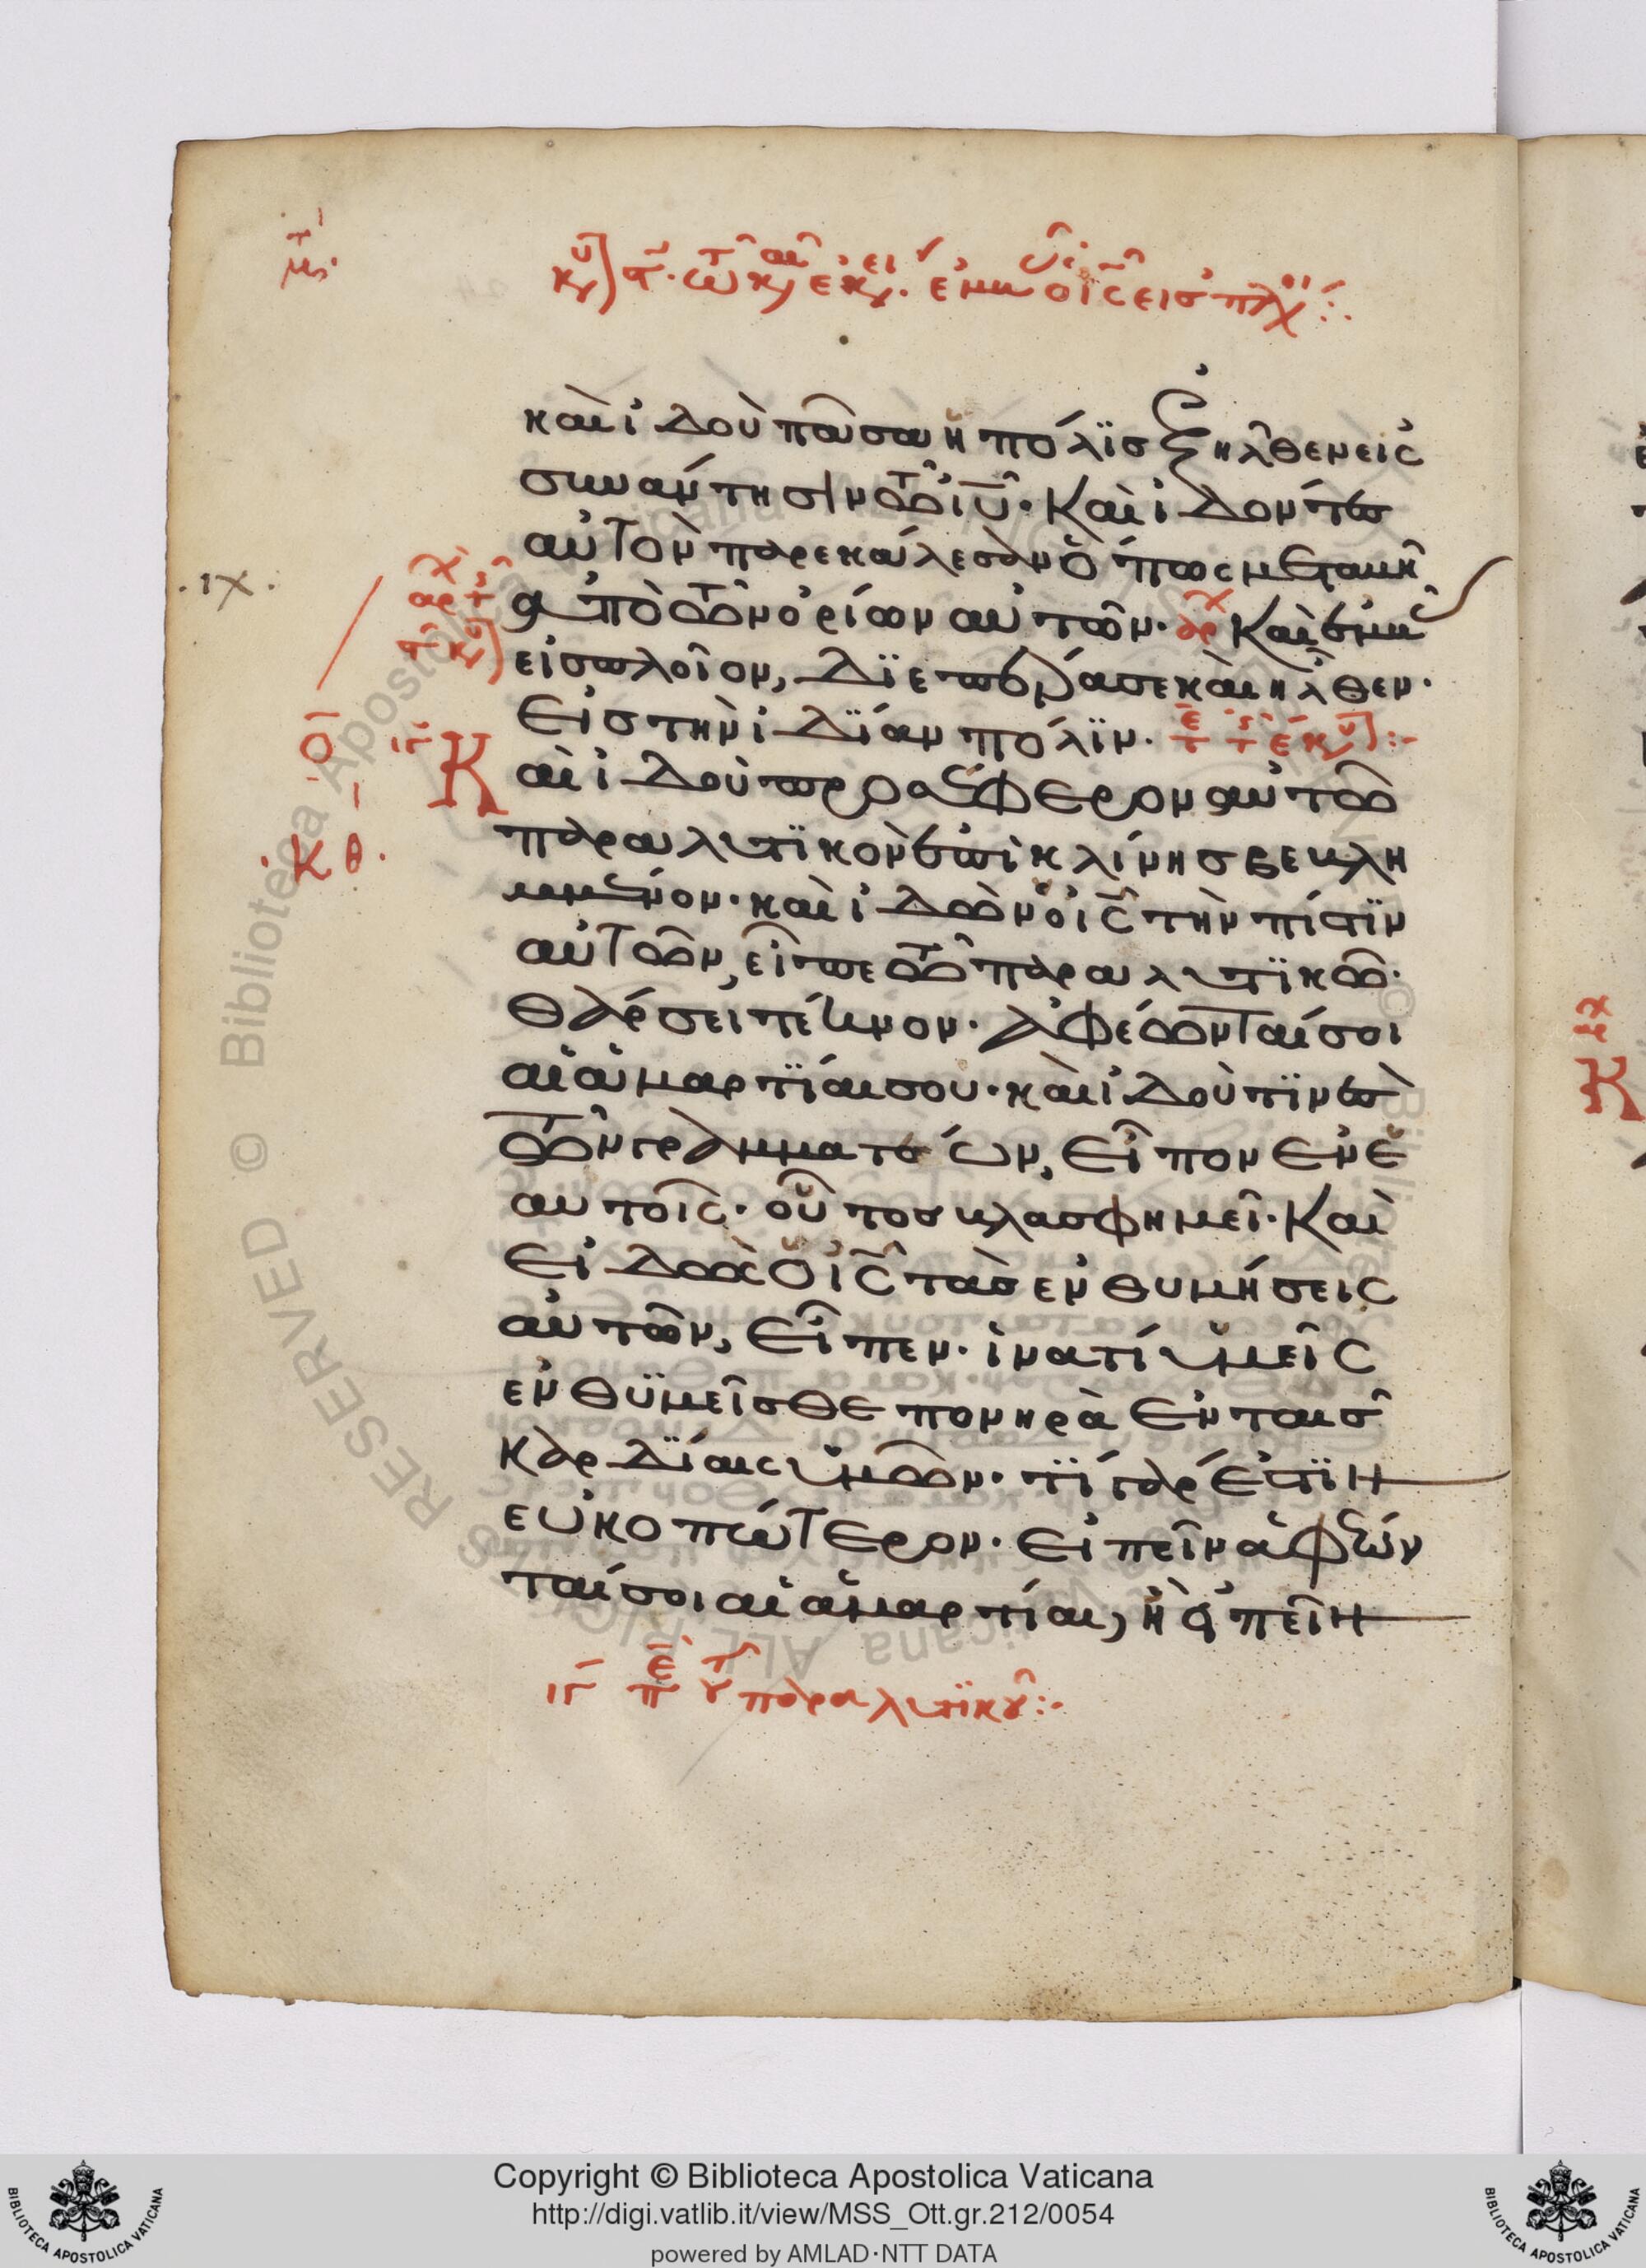 καὶ ἰδοὺ πᾶσα ἡ πόλϊς ἐξῆλθεν εἰς
συνάντησιν τῶ ιῦ· Καὶ ἰδόντες
αὐτὸν παρεκάλεσαν ὅπως μεταβῆ
ἀπὸ τῶν ὁρίων αὐτῶν· αρχ Καὶ ἐμβὰς
εἰς πλοῖον, δϊεπέρασε καὶ ἦλθεν·
Εἰς τὴν ἰδΐαν πόλϊν·
Καὶ ἰδοὺ προσέφερον αὐτῶ
παραλυτϊκὸν ἐπὶ κλίνης βεβλη
μένον· καὶ ἰδὼν ὁ ις τὴν πίστϊν
αὐτῶν, εἶπε τῶ παραλυτϊκῶ·
Θάρσει τέκνον· ἀφέωνταί σοι
αἱ ἁμαρτΐαι σου· καὶ ἰδοὺ τϊνὲς
τῶν γραμματέων, Εἶπον ἐν ἑ
αυτοῖς· οὗτος βλασφημεῖ· Καὶ
Εἰδὼς ὁ ις τὰς ἐνθυμήσεις
αὐτῶν, Εἶπεν· ἱνατί ὑμεῖς
ἐνθϋμεῖσθε πονηρὰ ἐν ταῖς
καρδΐαις ὑμῶν· τΐ γάρ ἐστϊν
εὐκοπώτερον· Εἰπεῖν ἀφέων
ταί σοι αἱ ἁμαρτίαι, ἢ εἰπεῖν
ιγ πε τοῦ παραλυτϊκοῦ
.ιχ.
Κθ.
Copyright © Biblioteca Apostolica Vaticana
http://digi.vatlib.it/view/MSS_Ott.gr.212/0054
powered by AMLAD·NTT DATA
BIBLIOTECA APOSTOLICA VATICANA
BIBLIOTECA APOSTOLICA VATICANA